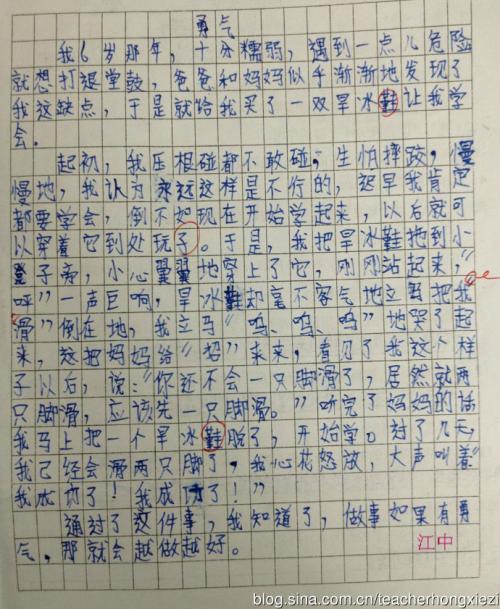 勇气
我6岁那年，十分懦弱，遇到一点儿危险
就想打退堂鼓，爸爸和妈妈似乎渐渐地发现了
我这缺点，于是就给我买了一双旱冰鞋让我学
会。
起初，我压根碰都不敢碰，生怕摔跤，慢
慢地，我认为永远这样是不行的，迟早我肯定
都要学会，倒不如现在开始学起来，以后就可
以穿着它到处玩了。于是，我把旱冰鞋拖到小
凳子旁，小心翼翼地穿上了它，刚刚站起来，“
呯”一声巨响，旱冰鞋却毫不客气地立马把我
“滑”倒在地，我立马“呜、呜、呜”地哭了起
来，这把妈妈给“招”来来，看见了我这个样
子以后，说：“你还不会一只脚滑了，居然就两
只脚滑，应该先一只脚滑。”听完了妈妈的话
我马上把一个旱冰鞋脱了，开始学。过了几天，
我已经会滑两只脚了，我心花怒放，大声叫着“
我成功了！我成功了！”
通过了这件事，我知道了，做事如果有勇
气，那就会越做越好。
江中
blog.sina.com.cn/teacherhongxiezi